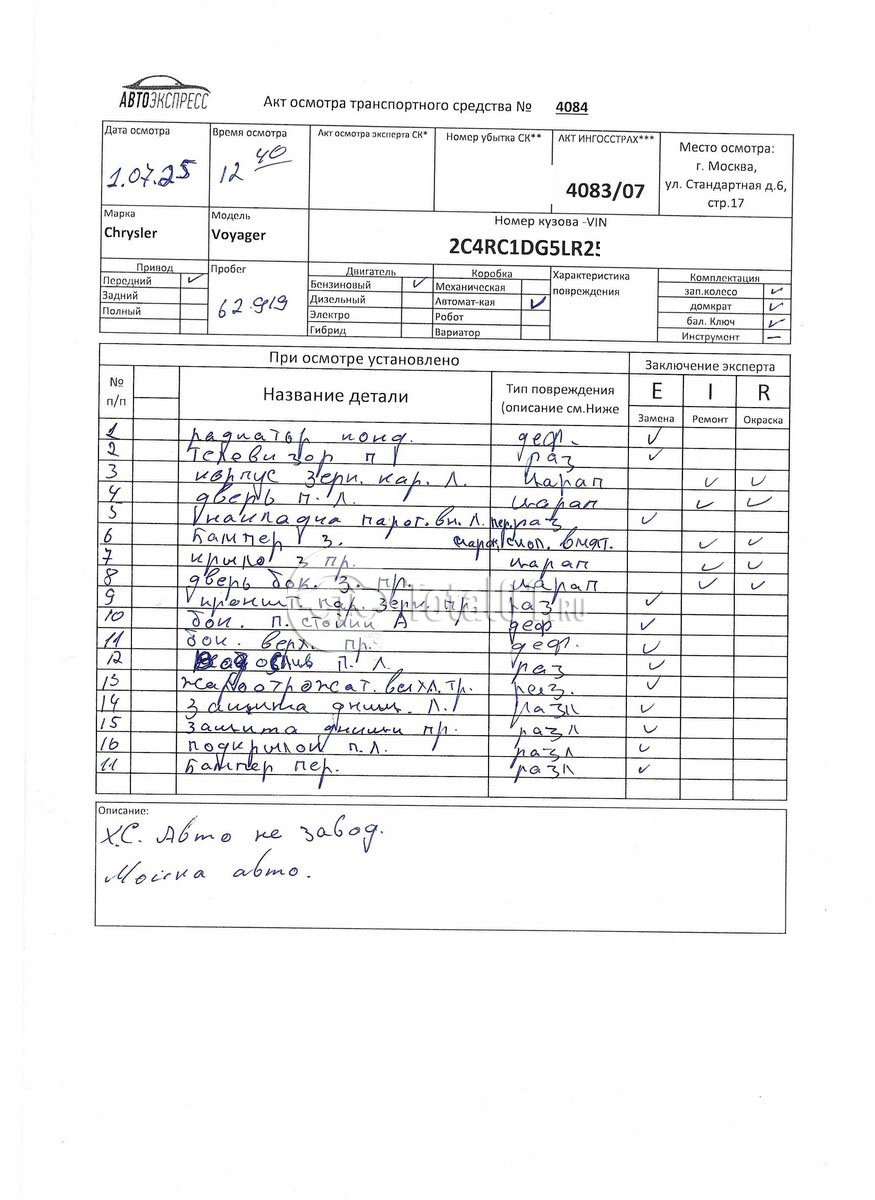 АВТОЭКСПРЕСС
Акт осмотра транспортного средства № 4084
Дата осмотра
1.07.25
Время осмотра
12 40
Акт осмотра эксперта СК*
Номер убытка СК**
АКТ ИНГОССТРАХ***
4083/07
Место осмотра:
г. Москва,
ул. Стандартная д.6,
стр.17
Марка
Chrysler
Модель
Voyager
Номер кузова -VIN
2C4RC1DG5LR25
Привод
Передний ✓
Задний
Полный
Пробег
62.919
Двигатель
Бензиновый ✓
Дизельный
Электро
Гибрид
Коробка
Механическая
Автомат-кая ✓
Робот
Вариатор
Характеристика
повреждения
Комплектация
зап.колесо ✓
домкрат ✓
бал. Ключ ✓
Инструмент –
При осмотре установлено
Заключение эксперта
№ п/п
Название детали
Тип повреждения
(описание см.Ниже
E I R
Замена Ремонт Окраска
1 радиатор конд. деф. ✓
2 Телевизор п раз ✓
3 корпус зерк. нар. Л. царап ✓ ✓
4 дверь п. л. царап ✓ ✓
5 накладка порог. вн. Л. пер. раз ✓
6 Бампер з. скол. ✓ ✓
7 крыло з пр. царап ✓ ✓
8 дверь бок. з. пр. царап ✓ ✓
9 кроншт нар. зерк. пр. раз ✓
10 бок. п. стойки А деф ✓
11 бок. верх. пр. деф. ✓
12 п. л. раз ✓
13 жароотражат. выхл. тр. раз. ✓
14 защита днищ. Л. разл ✓
15 защита днища пр. разл ✓
16 подкрылок п. л. разл ✓
11 Бампер пер. разл ✓
TotalCar.RU
Описание:
Х.С. Авто не завод.
Мойка авто.